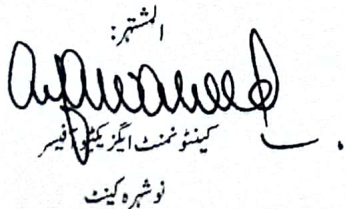 المشتہر:
کینٹونمنٹ ایگزیکٹو آفیسر
نوشہرہ کینٹ